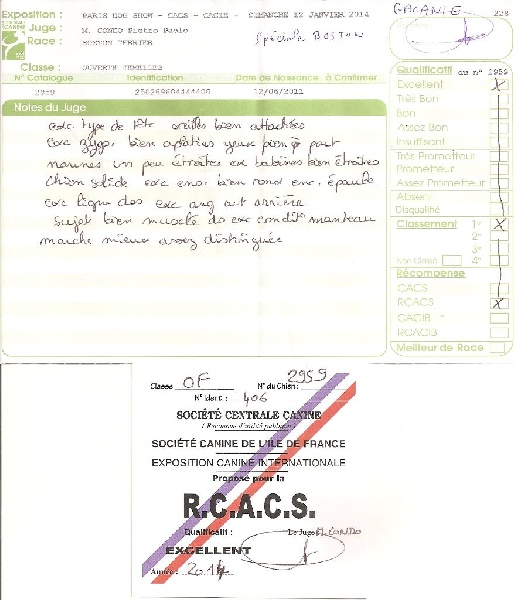 GRCANIE 228
Exposition : PARIS DOG SHOW - CACS - CACIB - DIMANCHE 12 JANVIER 2014
Juge : M. CONDO Pietro Paolo
Race : BOSTON TERRIER
Spéciale BOSTON
Classe : OUVERTE FEMELLES
N° Catalogue Identification Date de Naissance à Confirmer
2959 12/06/2011
Notes du Juge
exc. type de tête oreilles bien attachées
exc. bien aplaties yeux bien part
narines un peu étroites exc babines bien étroites
chien solide exc enc. bien rond enc. épaule
exc ligne dos exc ang art arrière
sujet bien musclé dos exc condit° manteau
marche mieux assez distinguée
Qualificatif du n° 1959
Excellent X
Très Bon
Bon
Assez Bon
Insuffisant
Très Prometteur
Prometteur
Assez Prometteur
Absent
Disqualifié
Classement 1er X
2e
3e
Non Classé 4e
Récompense
CACS
RCACS X
CACIB *
RCACIB
Meilleur de Race
Classe OF N° du Chien : 2959
N° Ident : 406
SOCIÉTÉ CENTRALE CANINE
(Reconnue d'utilité publique)
SOCIÉTÉ CANINE DE L'ILE DE FRANCE
EXPOSITION CANINE INTERNATIONALE
Proposé pour la
R.C.A.C.S.
Qualificatif : Le Juge
EXCELLENT
Année : 2014